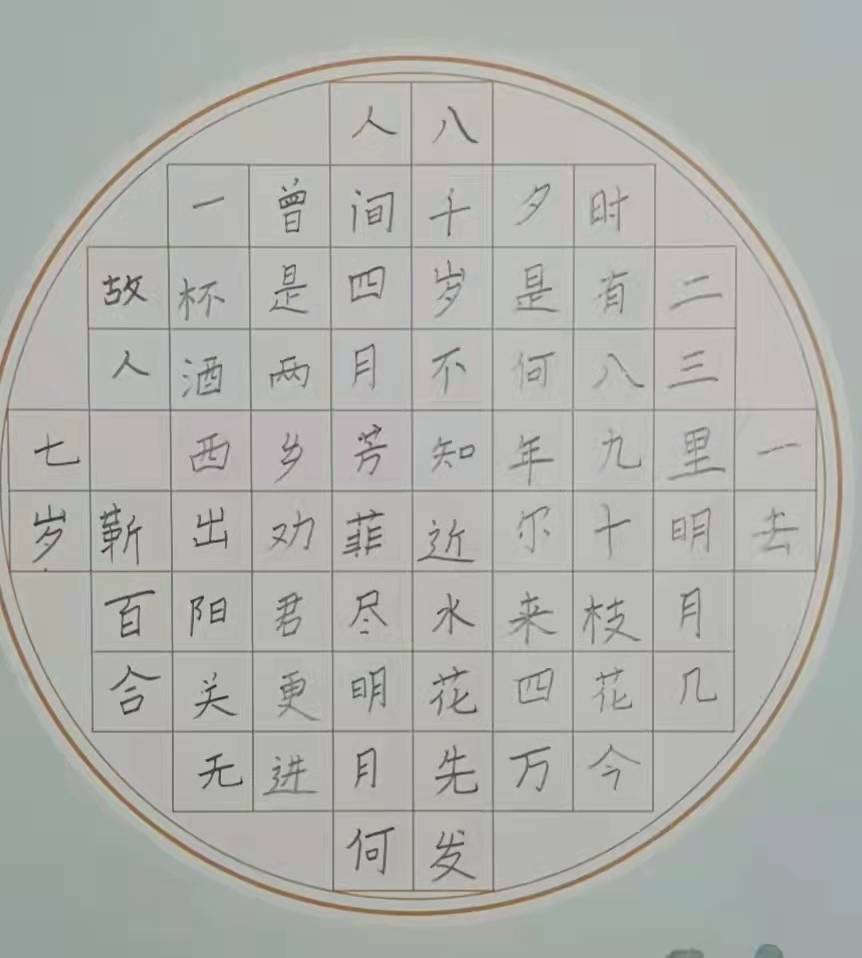 一去
二三里明月几
时有八九十枝花今
夕是何年尔来四万
八千岁不知近水花先发
人间四月芳菲尽明月何
曾是两乡劝君更进
一杯酒西出阳关无
故人 靳百合
七岁